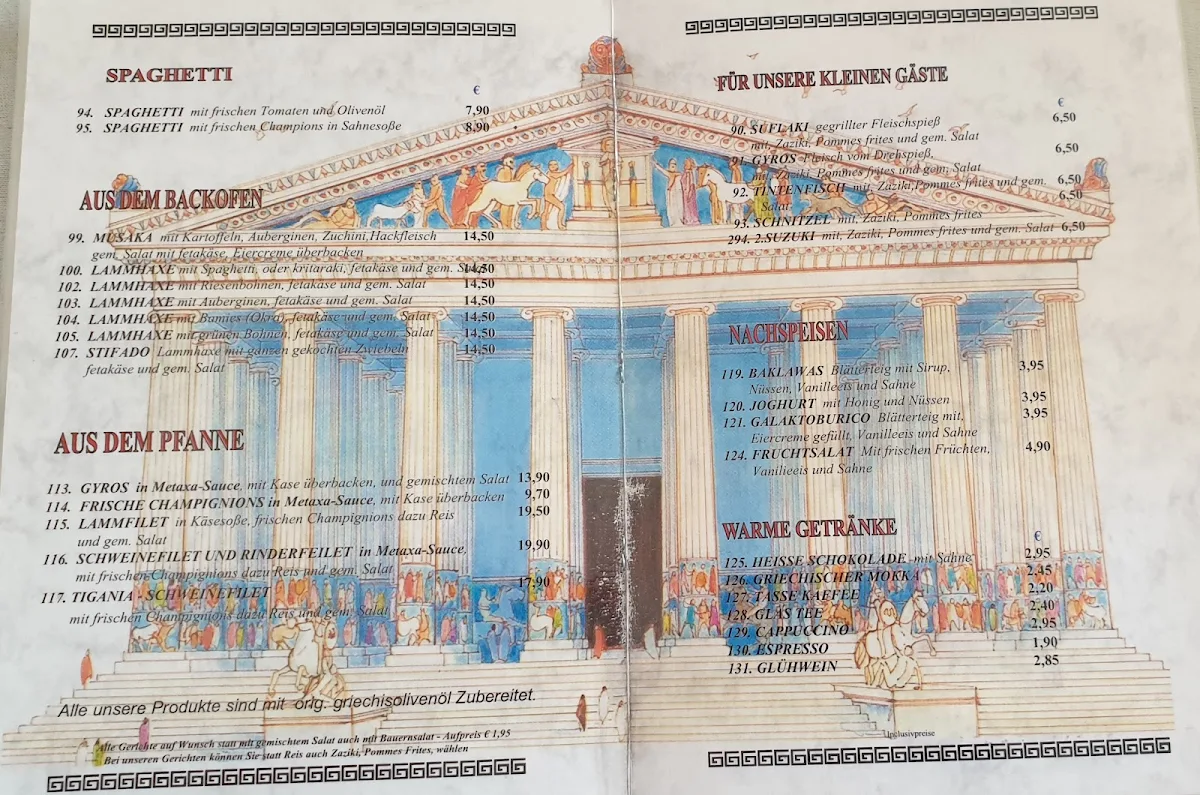 SPAGHETTI
€
94. SPAGHETTI mit frischen Tomaten und Olivenöl 7,90
95. SPAGHETTI mit frischen Champions in Sahnesoße 8,90
AUS DEM BACKOFEN
99. MUSAKA mit Kartoffeln, Auberginen, Zuchini,Hackfleisch 14,50
gem. Salat mit fetakäse, Eiercreme überbacken
100. LAMMHAXE mit Spaghetti, oder kritaraki, fetakäse und gem. Salat 14,50
102. LAMMHAXE mit Riesenbohnen, fetakäse und gem. Salat 14,50
103. LAMMHAXE mit Auberginen, fetakäse und gem. Salat 14,50
104. LAMMHAXE mit Bamies (Okra), fetakäse und gem. Salat 14,50
105. LAMMHAXE mit grünen Bohnen, fetakäse und gem. Salat 14,50
107. STIFADO Lammhaxe mit ganzen gekochten Zwiebeln 14,50
fetakäse und gem. Salat
AUS DEM PFANNE
113. GYROS in Metaxa-Sauce, mit Kase überbacken, und gemischtem Salat 13,90
114. FRISCHE CHAMPIGNIONS in Metaxa-Sauce, mit Kase überbacken 9,70
115. LAMMFILET in Käsesoße, frischen Champignions dazu Reis 19,50
und gem. Salat
116. SCHWEINEFILET UND RINDERFEILET in Metaxa-Sauce, 19,90
mit frischen Champignions dazu Reis und gem. Salat
117. TIGANIA - SCHWEINEFILET 17,90
mit frischen Champignions dazu Reis und gem. Salat
Alle unsere Produkte sind mit orig. griechisolivenöl Zubereitet.
Alle Gerichte auf Wunsch statt mit gemischtem Salat auch mit Bauernsalat - Aufpreis € 1,95
Bei unseren Gerichten können Sie statt Reis auch Zaziki, Pommes Frites, wählen
FÜR UNSERE KLEINEN GÄSTE
€
90. SUFLAKI gegrillter Fleischspieß 6,50
mit, Zaziki, Pommes frites und gem. Salat
91. GYROS Fleisch vom Drehspieß, 6,50
mit, Zaziki, Pommes frites und gem. Salat
92. TINTENFISCH mit, Zaziki,Pommes frites und gem. 6,50
Salat 6,50
93. SCHNITZEL mit, Zaziki, Pommes frites
294. 2.SUZUKI mit, Zaziki, Pommes frites und gem. Salat 6,50
NACHSPEISEN
119. BAKLAWAS Blätterteig mit Sirup, 3,95
Nüssen, Vanilleeis und Sahne
120. JOGHURT mit Honig und Nüssen 3,95
121. GALAKTOBURICO Blätterteig mit, 3,95
Eiercreme gefüllt, Vanilleeis und Sahne
124. FRUCHTSALAT Mit frischen Früchten, 4,90
Vanilieeis und Sahne
WARME GETRÄNKE
€
125. HEISSE SCHOKOLADE mit Sahne 2,95
126. GRIECHISCHER MOKKA 2,45
127. TASSE KAFFEE 2,20
128. GLAS TEE 2,40
129. CAPPUCCINO 2,95
130. ESPRESSO 1,90
131. GLÜHWEIN 2,85
Inclusivpreise